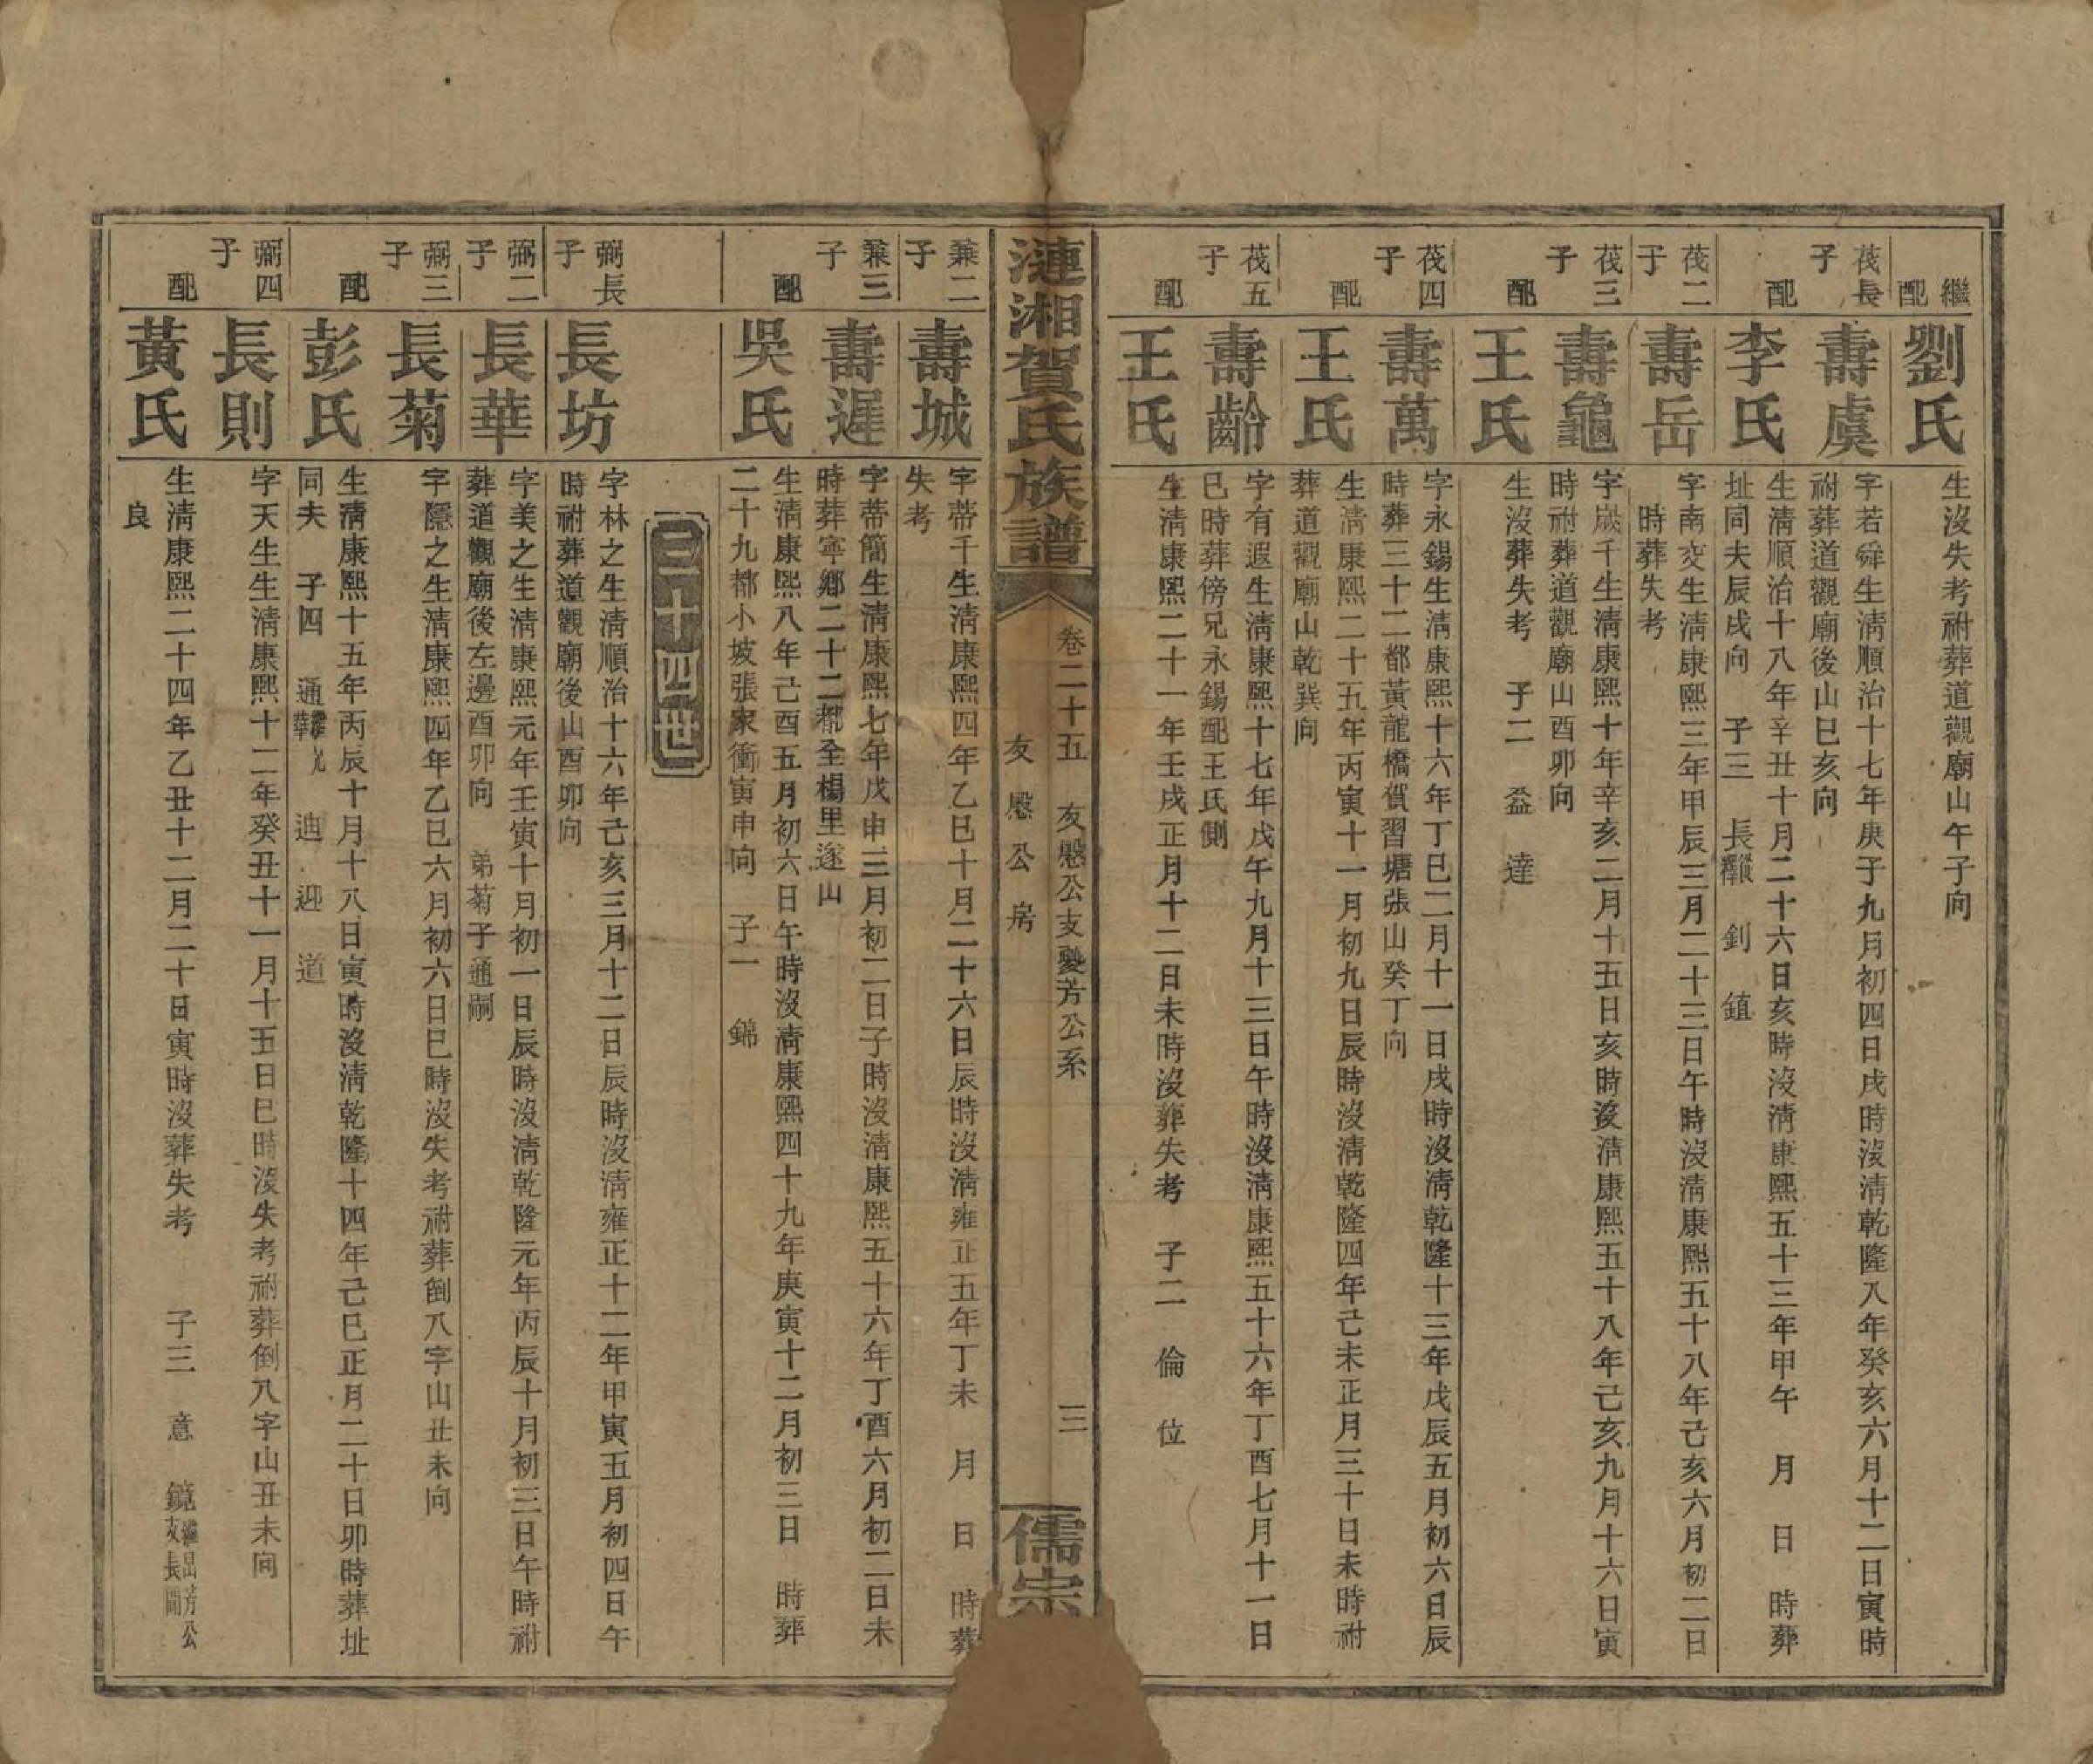 繼配
劉氏
生沒失考祔葬道觀廟山午子向
茷長子
壽虞
字若舜生淸順治十七年庚子九月初四日戌時沒淸乾隆八年癸亥六月十二日寅時
祔葬道觀廟後山巳亥向
配
李氏
生淸順治十八年辛丑十月二十六日亥時沒淸康熙五十三年甲午 月 日 時葬
址同夫辰戌向 子三 長 釗 鎮
茷二子
壽岳
字南交生淸康熙三年甲辰三月二十三日午時沒淸康熙五十八年己亥六月初二日
時葬失考
茷三子
壽龜
字歲千生淸康熙十年辛亥二月十五日亥時沒淸康熙五十八年己亥九月十六日寅
時祔葬道觀廟山酉卯向
配
王氏
生沒葬失考 子二 益 達
茷四子
壽萬
字永錫生淸康熙十六年丁巳二月十一日戌時沒淸乾隆十三年戊辰五月初六日辰
時葬三十二都黃龍橋賀習塘張山癸丁向
配
王氏
生淸康熙二十五年丙寅十一月初九日辰時沒淸乾隆四年己未正月三十日未時祔
葬道觀廟山乾巽向
茷五子
壽齡
字有遐生淸康熙十七年戊午九月十三日午時沒淸康熙五十六年丁酉七月十一日
巳時葬傍兄永錫配王氏側
配
王氏
生淸康熙二十一年壬戌正月十二日未時沒葬失考 子二 倫 位
漣湘賀氏族譜
卷二十五 友懸公支夔芳公系
友懸公房
三
儒宗
兼二子
壽城
字蒂千生淸康熙四年乙巳十月二十六日辰時沒淸雍正五年丁未 月 日 時葬
失考
兼三子
壽遲
字蒂簡生淸康熙七年戊申三月初二日子時沒淸康熙五十六年丁酉六月初二日未
時葬寧鄉二十二都全楊里逐山
配
吳氏
生淸康熙八年己酉五月初六日午時沒淸康熙四十九年庚寅十二月初三日 時葬
二十九都小坡張家衝寅申向 子一 錦
三十四世
弼長子
長坊
字林之生淸順治十六年己亥三月十二日辰時沒淸雍正十二年甲寅五月初四日午
時祔葬道觀廟後山酉卯向
弼二子
長華
字美之生淸康熙元年壬寅十月初一日辰時沒淸乾隆元年丙辰十月初三日午時祔
葬道觀廟後左邊酉卯向 弟菊子通嗣
弼三子
長菊
字隱之生淸康熙四年乙巳六月初六日巳時沒失考祔葬倒八字山丑未向
配
彭氏
生淸康熙十五年丙辰十月十八日寅時沒淸乾隆十四年己巳正月二十日卯時葬址
同夫 子四 通繼兄華 迪 迎 道
弼四子
長則
字天生生淸康熙十二年癸丑十一月十五日巳時沒失考祔葬倒八字山丑未向
配
黃氏
生淸康熙二十四年乙丑十二月二十日寅時沒葬失考 子三 意 鏡繼出芳公支長圖
良